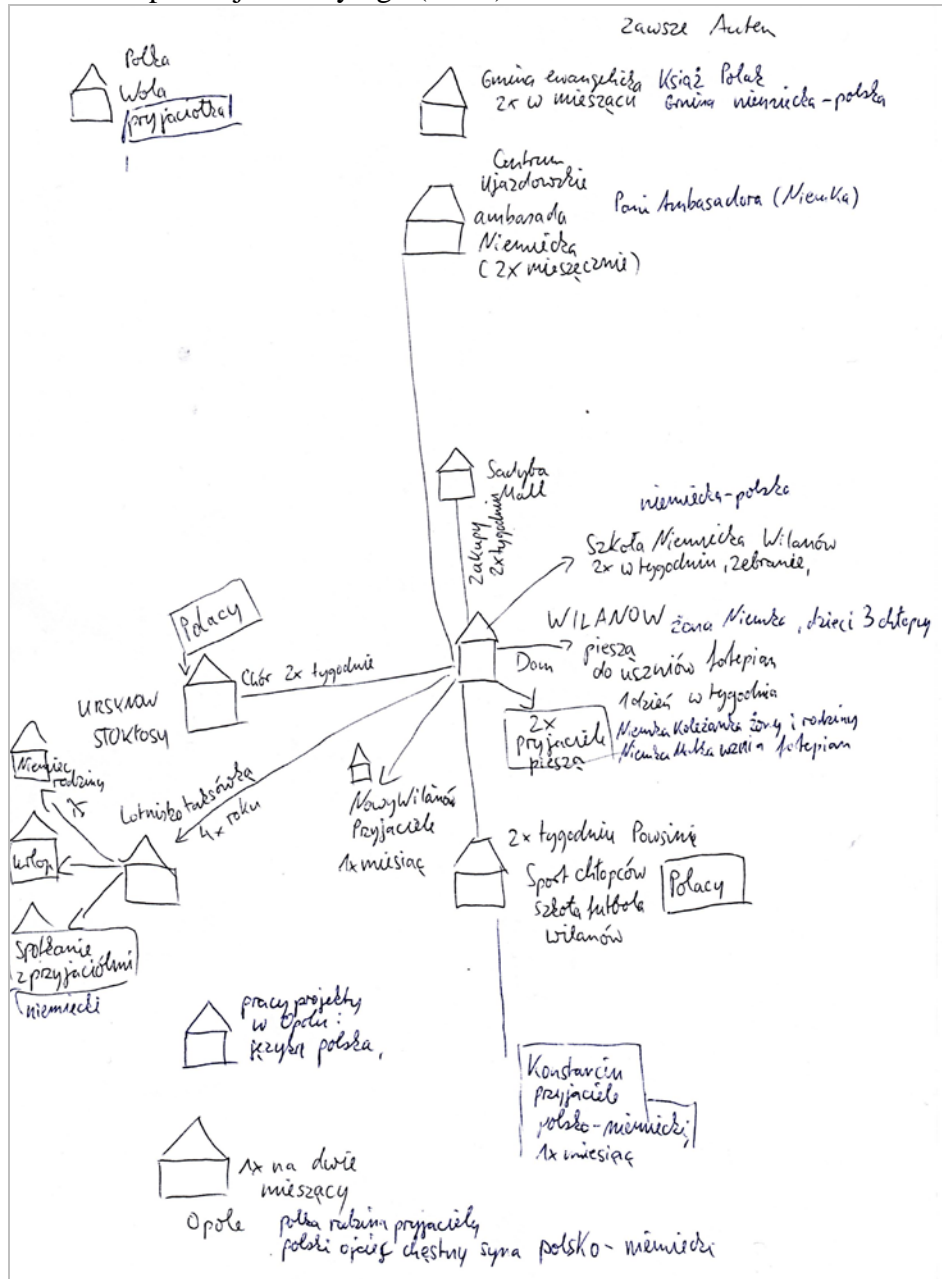 zawsze Auten
Polka
Wola
pryjaciółka
Gmina ewangelicka Książ Polak
2x w miesiącu Gmina niemiecka-polska
Centrum
Ujazdowskie
ambasada
Niemiecka
(2x mieszęcznie)
Pani Ambasadora (Niemka)
Sadyba
Mall
zakupy
2x tygodniu
niemiecka-polska
Szkoła Niemiecka Wilanów
2x w tygodniu, zebranie,
WILANOW żona Niemka, dzieci 3 chłopcy
Dom
pieszą
do uszniów fotepian
1 dzień w tygodnia
2x
pryjaciele
pieszą
Niemka Koleżanka żony i rodziny
Niemka Matka uznia fotepian
Polacy
Chór 2x tygodnie
URSYNOW
STOKŁOSY
Niemiec
rodziny
Lotnisko taksówką
4x roku
urlop
Spotkanie
z przyjaciółmi
niemiecki
Nowy Wilanów
Przyjaciele
1x miesiąc
2x tygodniu Powsinie
Sport chłopców
szkoła futbola
wilanów
Polacy
pracy projekty
w Opolu:
język polska,
Konstancin
przyjaciele
polsko-niemiecki,
1x miesiąc
1x na dwie
mieszący
Opole
polka rodzina pryjaciely
polski ojciec chestny syna polsko-niemiecki